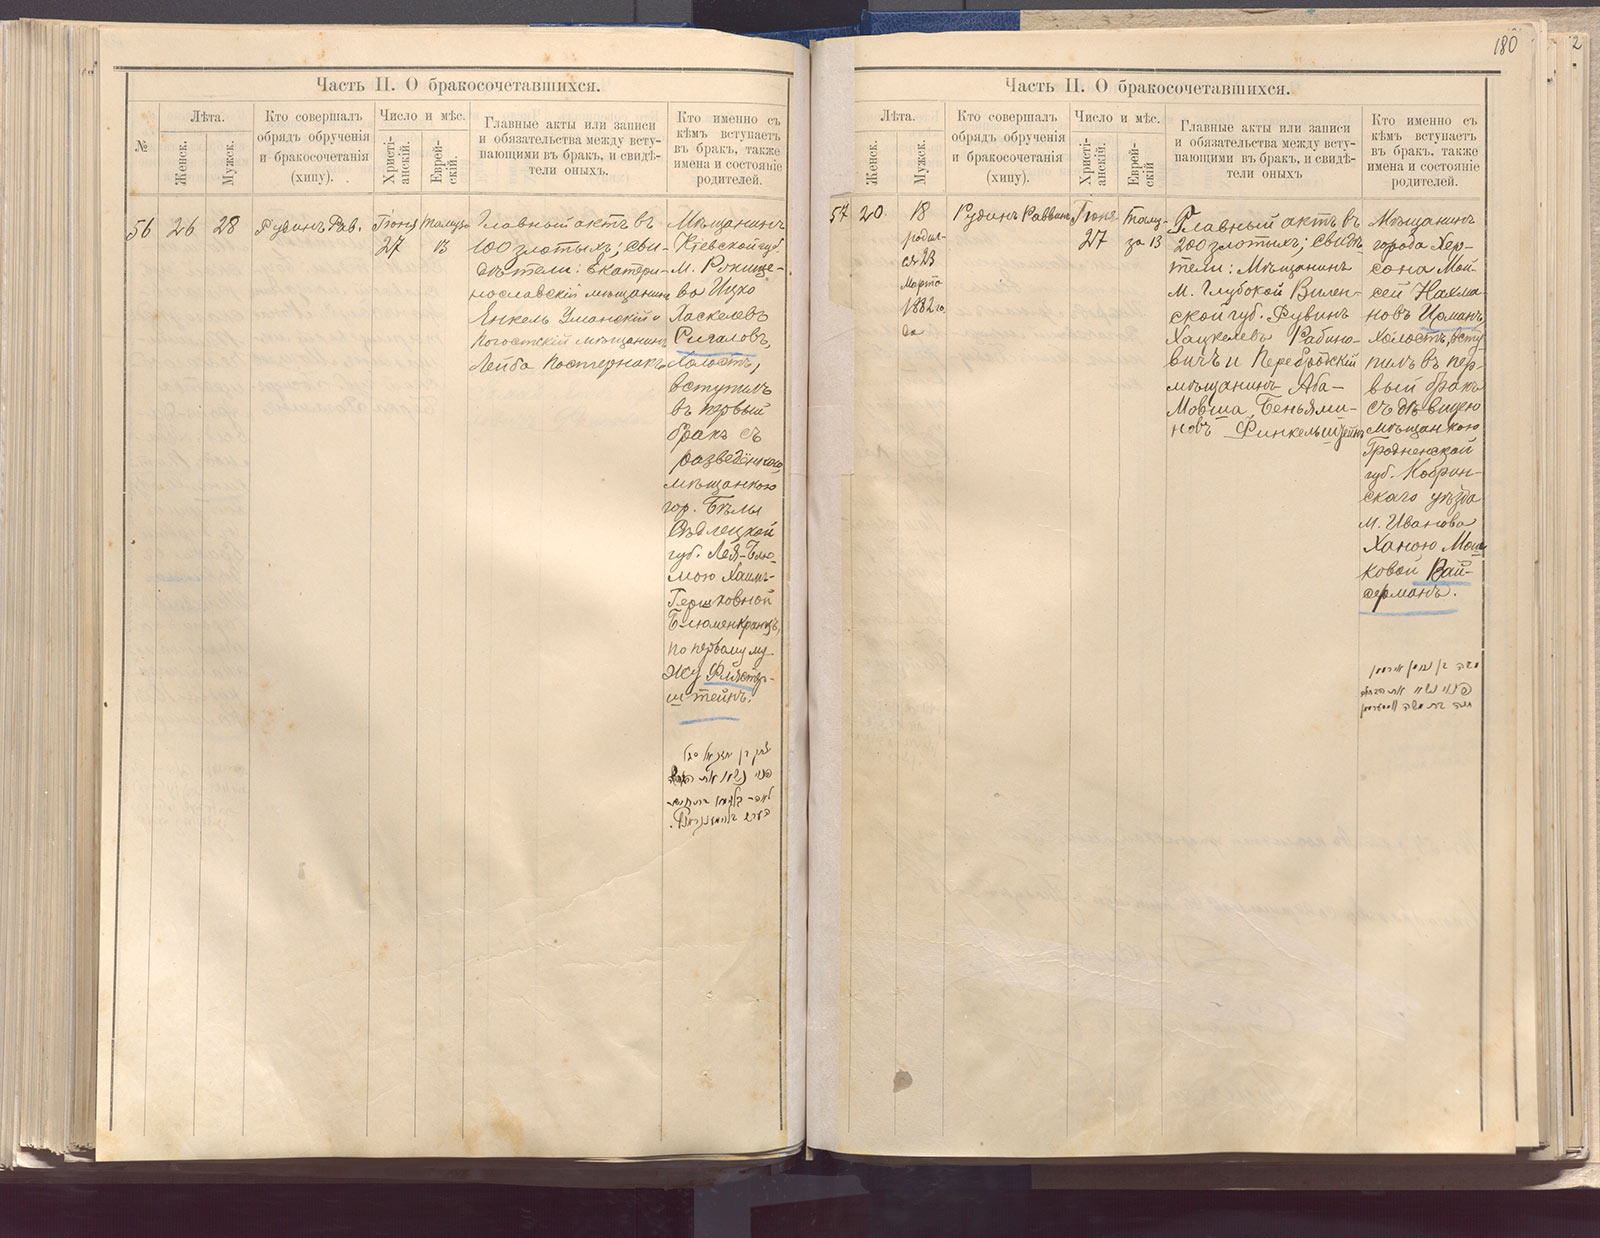 Часть II. О бракосочетавшихся.
№
Лѣта.
Женск.
Мужск.
Кто совершалъ
обрядъ обрученія
и бракосочетанія
(хипу).
Число и мѣс.
Христі-
анскій.
Еврей-
скій.
Главные акты или записи
и обязательства между всту-
пающими въ бракъ, и свидѣ-
тели оныхъ.
Кто именно съ
кѣмъ вступаетъ
въ бракъ, также
имена и состояніе
родителей.
56
26
28
Рувинъ Рав.
Іюня
27
Тамуза
13
Главный актъ въ
100 злотыхъ; Сви-
дѣтели: Екатери-
нославскій мѣщанинъ
Янкель Уманскій и
мѣщанинъ
Лейба Постернакъ
Мѣщанинъ
Кіевской губ.
м. Рокище-
ва Ицко
Хаскелевъ
Сигаловъ,
Холостъ,
вступилъ
въ первый
бракъ съ
разведённою,
мѣщанкою
гор. Бѣлы
Сѣдлецкой
губ. Лея-Блю-
мою Хаимъ-
Гершковной
Блюменкранцъ,
по первому му-
жу
штейнъ.
180
2
Часть II. О бракосочетавшихся.
Лѣта.
Женск.
Мужск.
Кто совершалъ
обрядъ обрученія
и бракосочетанія
(хипу).
Число и мѣс.
Христі-
анскій.
Еврей-
скій.
Главные акты или записи
и обязательства между всту-
пающими въ бракъ, и свидѣ-
тели оныхъ
Кто именно съ
кѣмъ вступаетъ
въ бракъ, также
имена и состояніе
родителей.
57
20
18
родил-
ся 23
Марта
1882 го-
да
Рувинъ Раввинъ
Іюня
27
Таму-
за 13
Главный актъ въ
200 злотыхъ; Свидѣ-
тели: Мѣщанинъ
м. Глубокой Вилен-
ской губ. Рувинъ
Хацкелевъ Рабино-
вичъ и Перебродскій
мѣщанинъ Аба-
Мовша Беньями-
новъ Финкельштейнъ
Мѣщанинъ
города Хер-
сона Мой-
сей Нахма-
новъ Ирманъ,
Холостъ, всту-
пилъ въ пер-
вый бракъ
съ дѣвицею
мѣщанкою
Гродненской
губ. Кобрин-
скаго уѣзда
м. Иванова
Ханою Мош-
ковой Вай-
дерманъ.